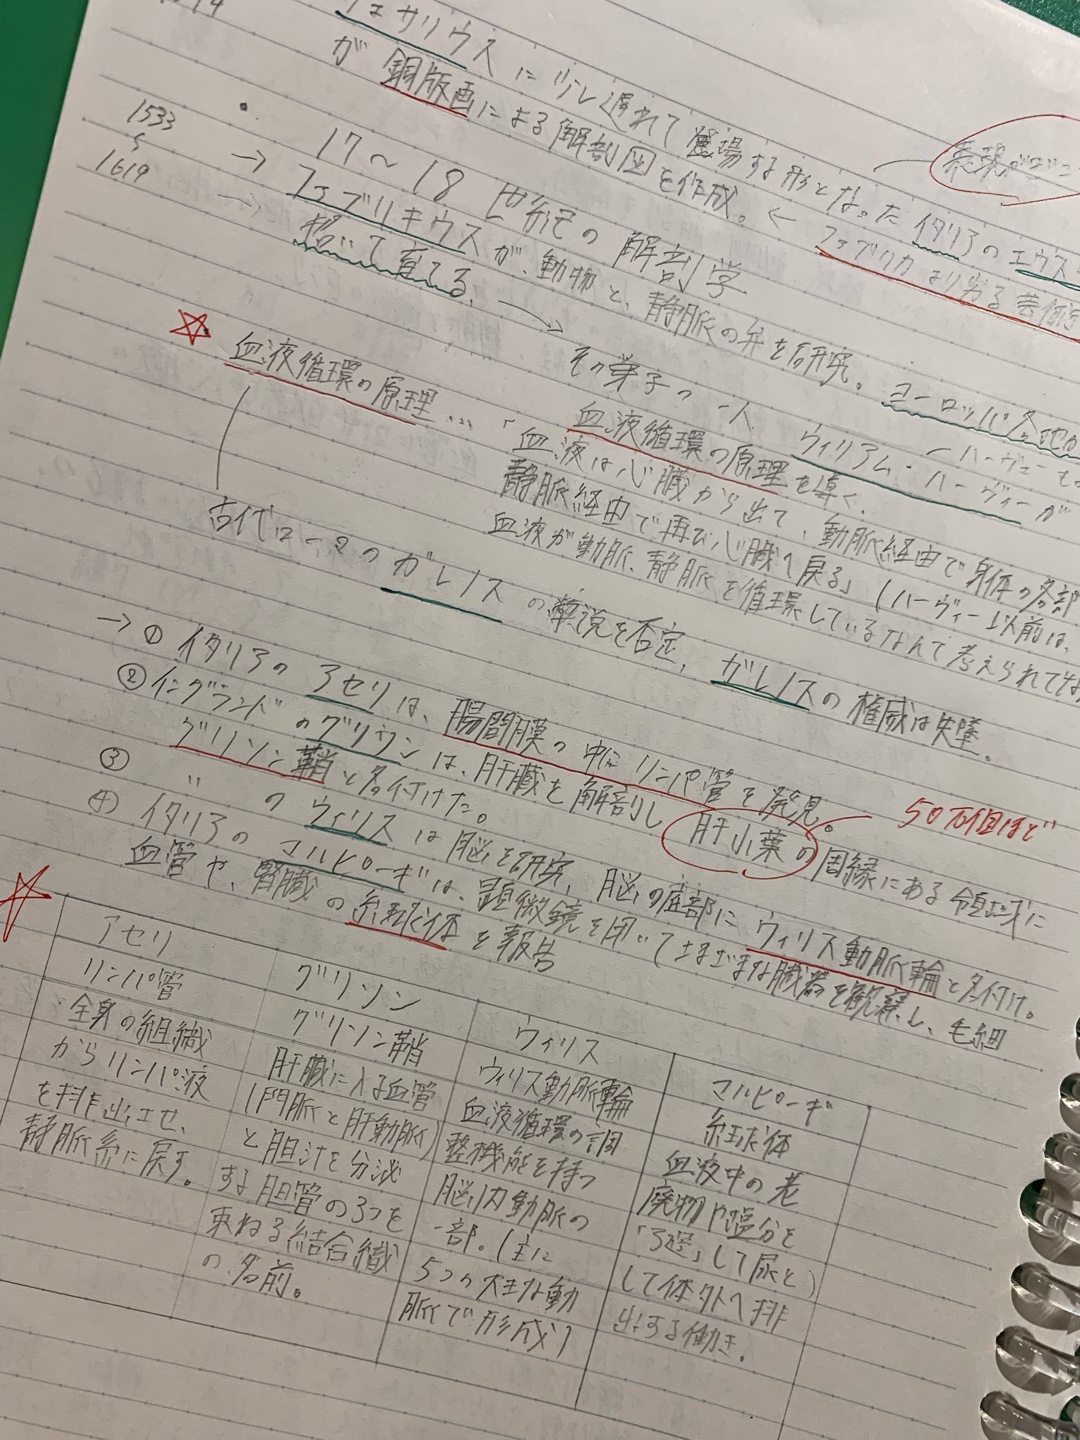 ヴェサリウスに少し遅れて登場する形となったイタリアのエウス
が銅版画による解剖図を作成。← ファブリカより劣る芸術
表現がすご
・17〜18世紀の解剖学
1533
〜
1619
→ ファブリキウスが、動物と、静脈の弁を研究。ヨーロッパ各地か
招いて育てる。
→ その弟子の一人 ウィリアム・ハーヴィーが
ハーヴェーとも
血液循環の原理を導く。
☆ 血液循環の原理…「血液は心臓から出て、動脈経由で身体の各部
静脈経由で再び心臓へ戻る」(ハーヴィー以前は、
血液が動脈、静脈を循環しているなんて考えられてな
古代ローマのガレノスの学説を否定、ガレノスの権威は失墜。
→ ① イタリアのアセリは、腸間膜の中にリンパ管を発見。
② イングランドのグリソンは、肝臓を解剖し肝小葉の周縁にある領域に
50万個ほど
グリソン鞘と名付けた。
③ 〃 のウィリスは脳を研究、脳の底部にウィリス動脈輪と名付け。
④ イタリアのマルピーギは、顕微鏡を用いてさまざまな臓器を観察し、毛細
血管や、腎臓の糸球体を報告
☆
アセリ
リンパ管
全身の組織
からリンパ液
を排出させ、
静脈系に戻す。
グリソン
グリソン鞘
肝臓に入る血管
(門脈と肝動脈)
と胆汁を分泌
する胆管の3つを
束ねる結合織
の名前。
ウィリス
ウィリス動脈輪
血液循環の調
整機能を持つ
脳内動脈の
一部。(主に
5つの大きな動
脈で形成)
マルピーギ
糸球体
血液中の老
廃物や塩分を
「ろ過」して尿と
して体外へ排
出する働き。